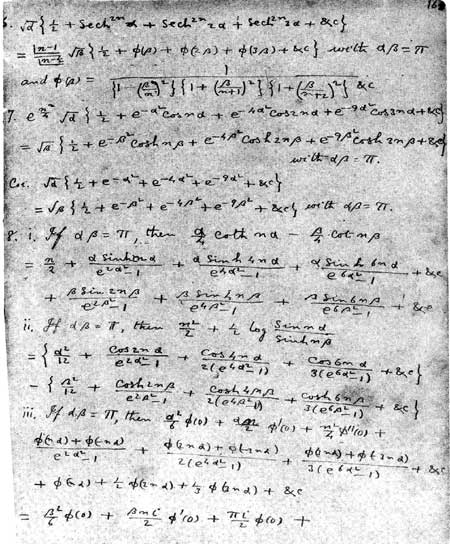 √α {½ + Sech²ⁿ α + Sech²ⁿ 2α + Sech²ⁿ 3α + &c}
√β {½ + φ(β) + φ(2β) + φ(3β) + &c} with αβ = π
and φ(β) = 1 / {1 + (β/n)²} {1 + (β/(n+1))²} {1 + (β/(n+2))²} &c
7. e^(n²/4) √α {½ + e^(-α²) cos nα + e^(-4α²) cos 2nα + e^(-9α²) cos 3nα + &c}
= √β {½ + e^(-β²) cosh nβ + e^(-4β²) cosh 2nβ + e^(-9β²) cosh 3nβ + &c}
with αβ = π.
Cor. √α {½ + e^(-α²) + e^(-4α²) + e^(-9α²) + &c}
= √β {½ + e^(-β²) + e^(-4β²) + e^(-9β²) + &c} with αβ = π.
8. i. If αβ = π, then α/4 coth nα - β/4 cot nβ
= n/2 + α Sinh 2nα/(e^(2α²) - 1) + α Sinh 4nα/(e^(4α²) - 1) + α Sinh 6nα/(e^(6α²) - 1) + &c
+ β Sin 2nβ/(e^(2β²) - 1) + β Sin 4nβ/(e^(4β²) - 1) + β Sin 6nβ/(e^(6β²) - 1) + &c
ii. If αβ = π, then n²/2 + ½ log Sin nα/Sinh nβ
= {α²/12 + Cos 2nα/(e^(2α²) - 1) + Cos 4nα/2(e^(4α²) - 1) + Cos 6nα/3(e^(6α²) - 1) + &c}
- {β²/12 + Cosh 2nβ/(e^(2β²) - 1) + Cosh 4nβ/2(e^(4β²) - 1) + Cosh 6nβ/3(e^(6β²) - 1) + &c}
iii. If αβ = π, then α²/6 φ(0) + αn/2 φ'(0) + n²/4 φ''(0) +
φ(nα) + φ(-nα)/(e^(2α²) - 1) + φ(2nα) + φ(-2nα)/2(e^(4α²) - 1) + φ(3nα) + φ(-3nα)/3(e^(6α²) - 1) + &c
+ φ(nα) + ½ φ(2nα) + ⅓ φ(3nα) + &c
= β²/6 φ(0) + βni/2 φ'(0) + πi/2 φ(0) +